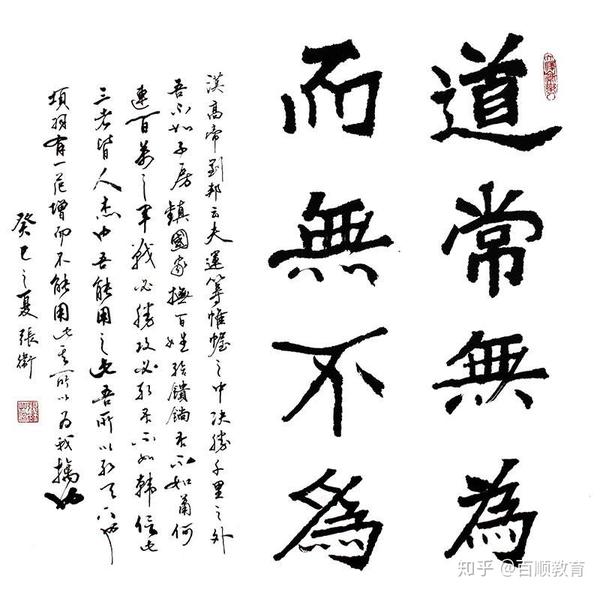 道常無為
而無不為
漢高帝劉邦云夫運筹帷幄之中决勝千里之外
吾不如子房鎮國家撫百姓给饋餉吾不如萧何
連百萬之軍戰必勝攻必取吾不如韓信此
三者皆人杰也吾能用之此吾所以取天下也
項羽有一范增而不能用此其所以为我擒也
癸巳之夏張衛
知乎 @百顺教育